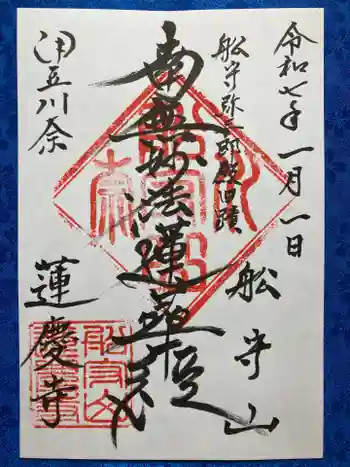 令和七年一月一日
船守山
船守弥三郎殿旧蹟
南無妙法蓮華経
伊豆川奈
蓮慶寺